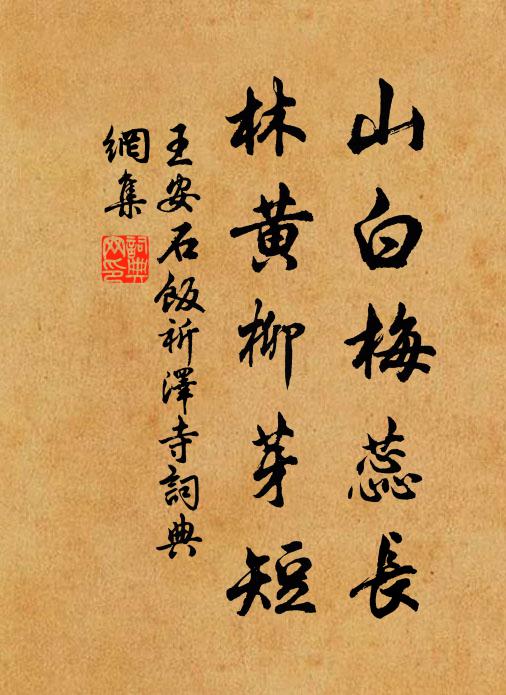 山白梅蕊長
林黄柳芽短
王安石飯祈澤寺詞典
網集
詞典
网印